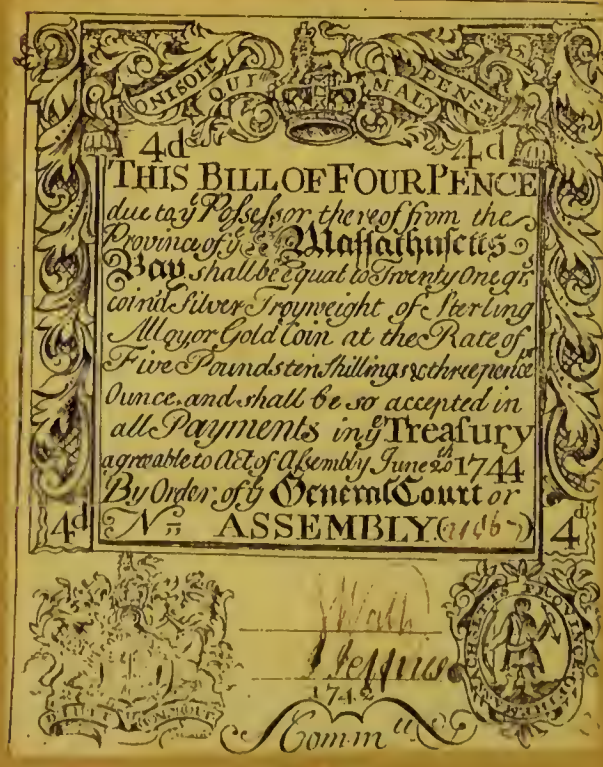 HONI SOIT QUI MAL Y PENSE
4d 4d
THIS BILL OF FOUR PENCE
due to yͤ Poſseſsor thereof from the
Province of yͤ Maſſachuſetts
Bay shall be equal to Twenty One gr:
coin'd Silver Troyweight of Sterling
Alloy or Gold Coin at the Rate of
Five Pounds ten shillings & three pence
Ounce, and shall be so accepted in
all Payments in yͤ Treaſury
agreeable to Act of Aſsembly June 20ᵗʰ 1744
By Order of yͤ General Court or
4d Nᵒ ASSEMBLY. 4d
DIEU ET MON DROIT
174
Commᵗᵗ